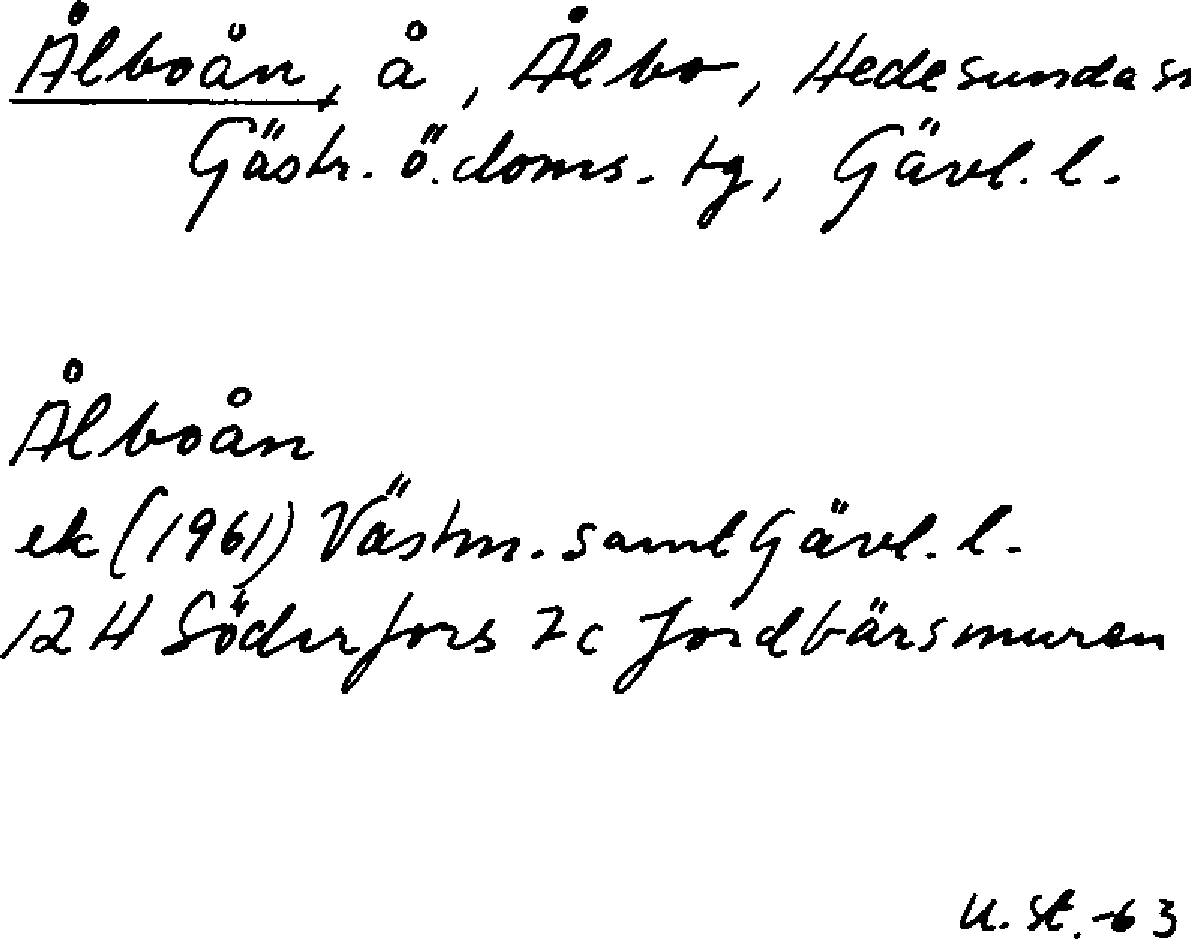 Ålboån, å, Ålbo, Hedesunda sn
Gästr. ö. doms. tg, Gävl. l.
Ålboån
ek (1961) Västm. samt Gävl. l.
12 H Söderfors 7c Jordbärsmuren
U. St. -63